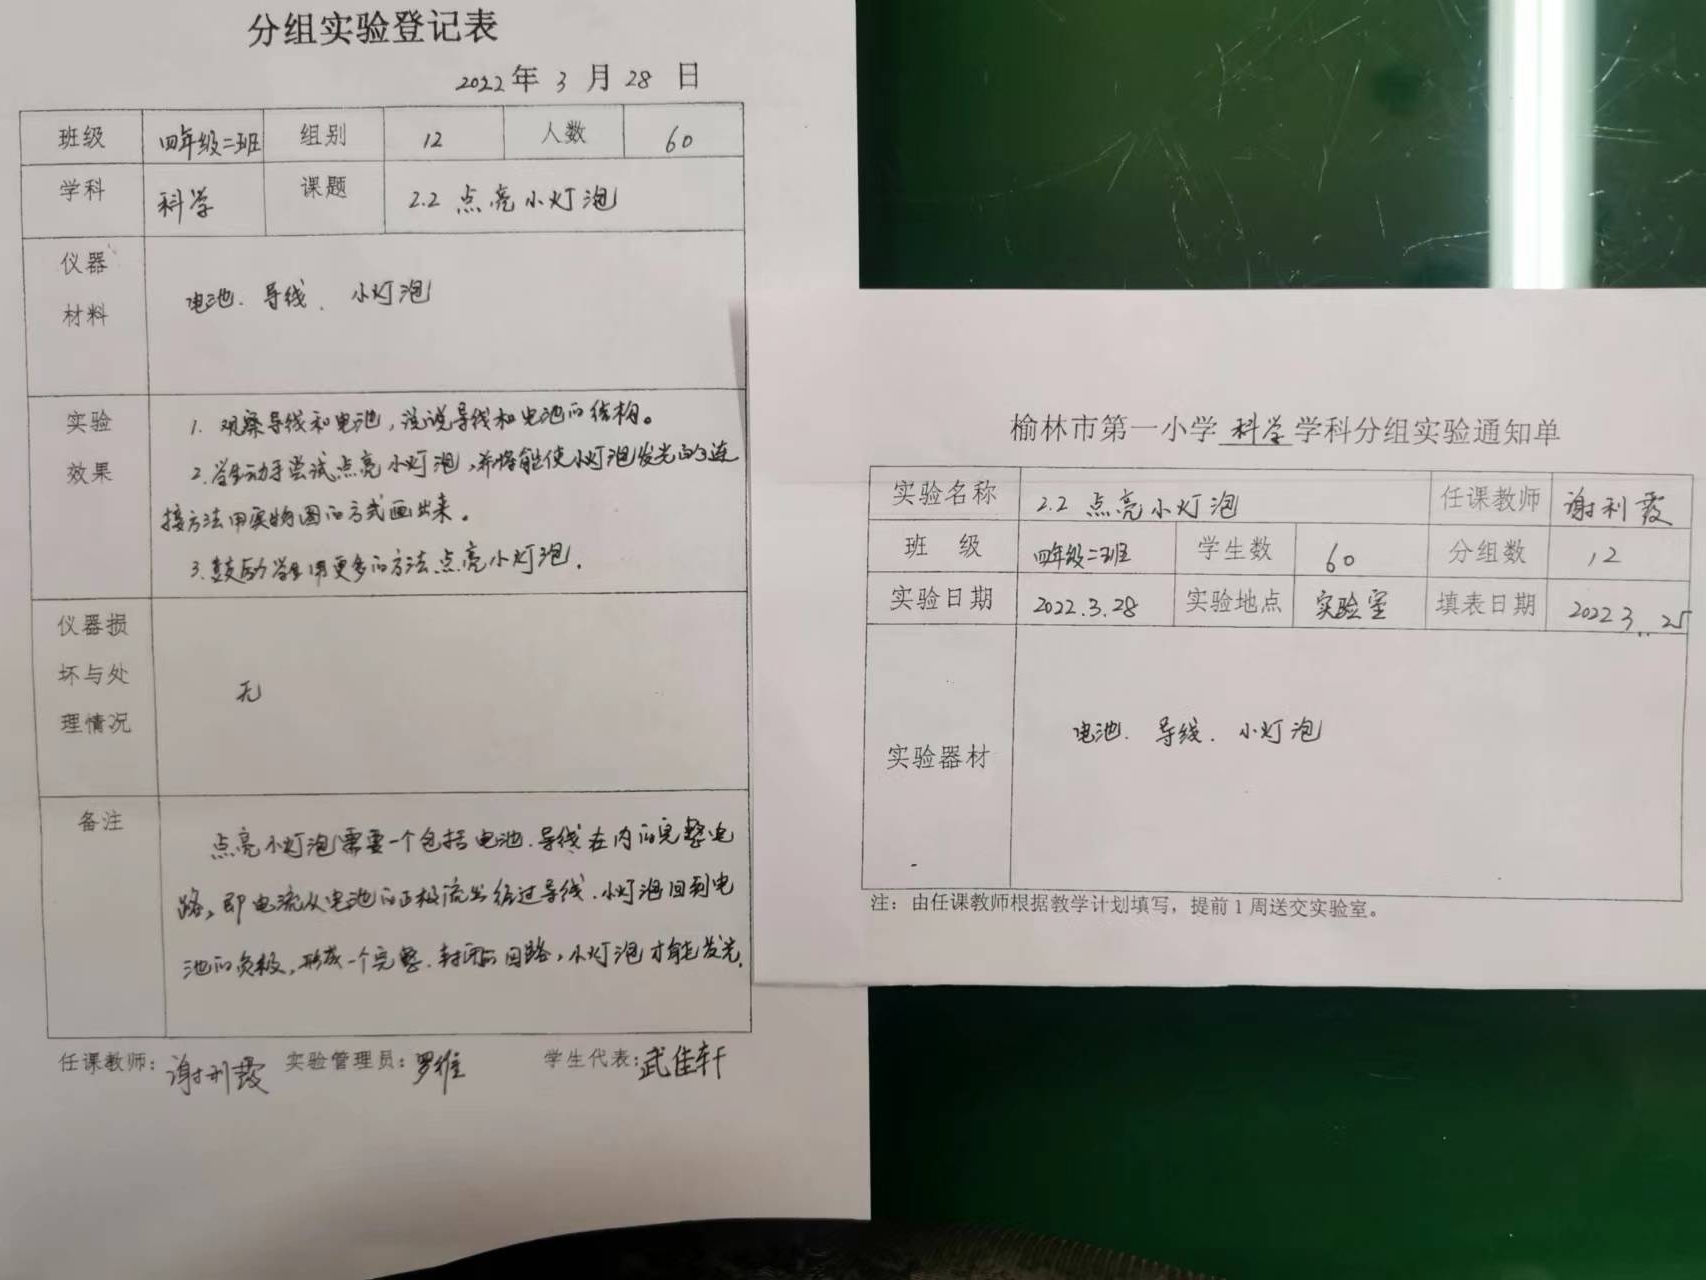 分组实验登记表
2022年 3 月 28 日
班级 四年级二班 组别 12 人数 60
学科 科学 课题 2.2 点亮小灯泡
仪器
材料
电池、导线、小灯泡
实验
效果
1. 观察导线和电池，说说导线和电池的结构。
2. 学生动手尝试点亮小灯泡，并将能使小灯泡发光的连
接方法用实物图的方式画出来。
3. 鼓励学生用更多的方法点亮小灯泡.
仪器损
坏与处
理情况
无
备注
点亮小灯泡需要一个包括电池、导线在内的完整电
路，即电流从电池的正极流出经过导线、小灯泡回到电
池的负极，形成一个完整、封闭的回路，小灯泡才能发光.
任课教师：谢利霞 实验管理员：罗维 学生代表：武佳轩
榆林市第一小学 科学 学科分组实验通知单
实验名称 2.2 点亮小灯泡 任课教师 谢利霞
班 级 四年级二班 学生数 60 分组数 12
实验日期 2022.3.28 实验地点 实验室 填表日期 2022 3..25
实验器材 电池、导线、小灯泡
注：由任课教师根据教学计划填写，提前1周送交实验室。